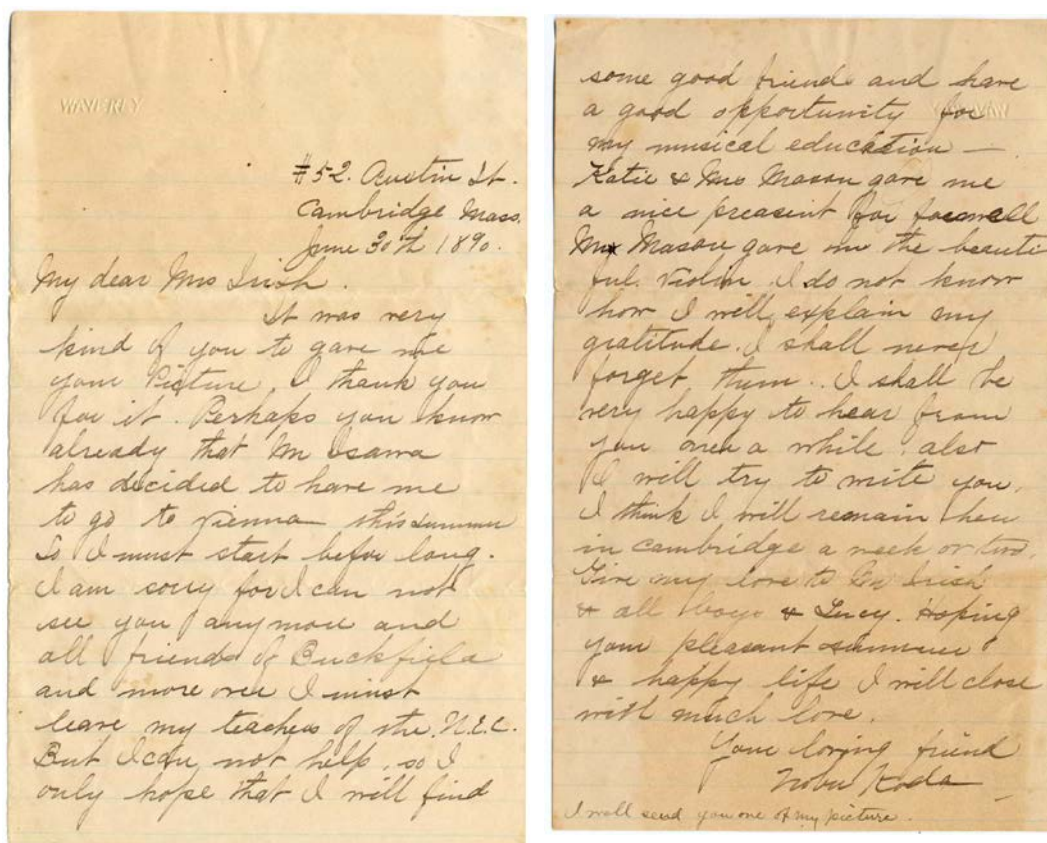 WAVERLY
#52. Austin St.
Cambridge Mass.
June 30th 1890.
My dear Mrs Irish.
It was very
kind of you to gave me
your Picture, I thank you
for it. Perhaps you know
already that Mr Isawa
has decided to have me
to go to Vienna this summer
So I must start before long.
I am sorry for I can not
see you any more and
all friends of Buckfield
and more over I must
leave my teachers of the N.E.C.
But I can not help, so I
only hope that I will find
some good friends and have
a good opportunity for
my musical education —
Katie & Mrs Mason gave me
a nice preasent for farewell
Mr Mason gave me the beauti
ful violin. I do not know
how I will explain my
gratitude. I shall never
forget them. I shall be
very happy to hear from
you once a while. also
I will try to write you.
I think I will remain here
in Cambridge a week or two.
Give my love to Dr Irish
& all boys & Lucy. Hoping
your pleasant summer
& happy life I will close
with much love.
Your loving friend
Nobu Koda
I will send you one of my picture.